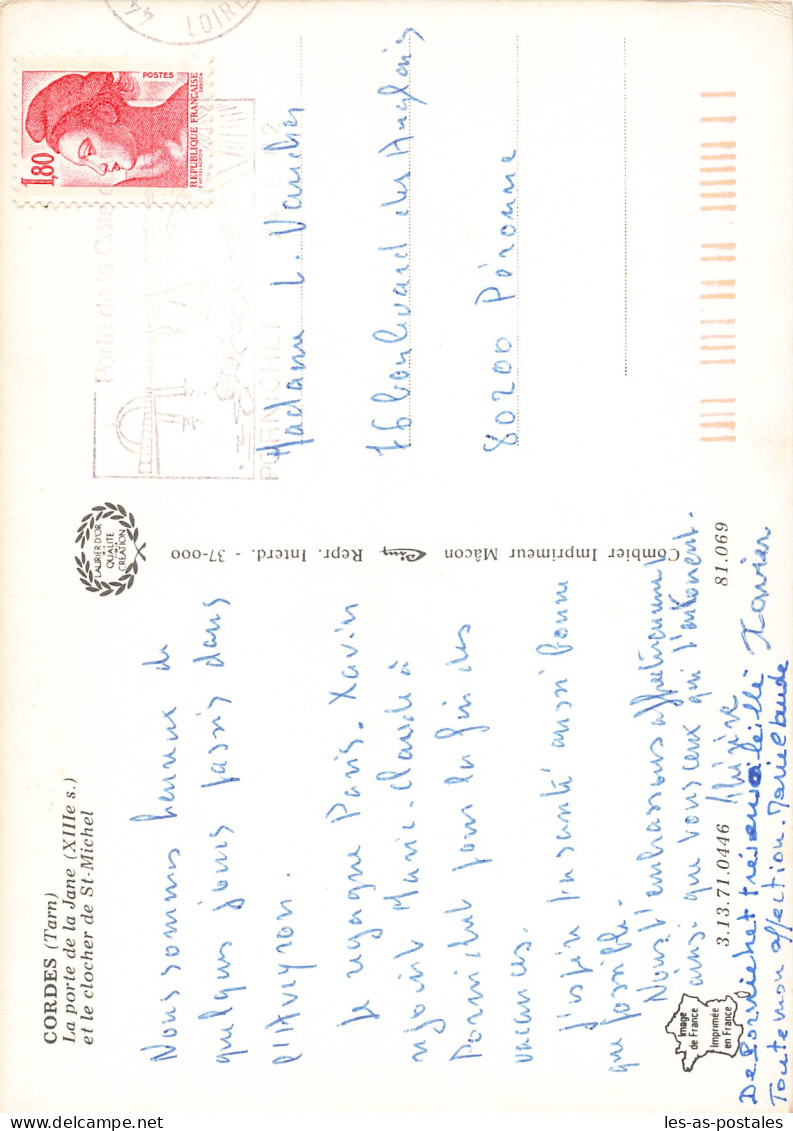 CORDES (Tarn)
La porte de la Jane (XIIIe s.)
et le clocher de St-Michel
Nous sommes heureux de
quelques jours passés dans
l'Aveyron.
Je regagne Paris. Xavier
rejoint Marie-Claude à
Pornichet pour la fin des
vacances.
J'espère ta santé aussi bonne
que possible.
Nous t'embrassons affectueusement
ainsi que tous ceux qui t'entourent.
De Pornichet très ensoleillé Xavier
Toute mon affection. Marie Claude
3.13.71.0446
81.069
Image
de France
Imprimée
en France
LAURIER D'OR
QUALITÉ
CRÉATION
Combier Imprimeur Mâcon
Repr. Interd. - 37-000
44
LOIRE
POSTES
REPUBLIQUE FRANÇAISE
1,80
Porte de la Côte
PORNICHET
Madame L. Vaucher
76 boulevard des Anglais
80200 Péronne
les-as-postales